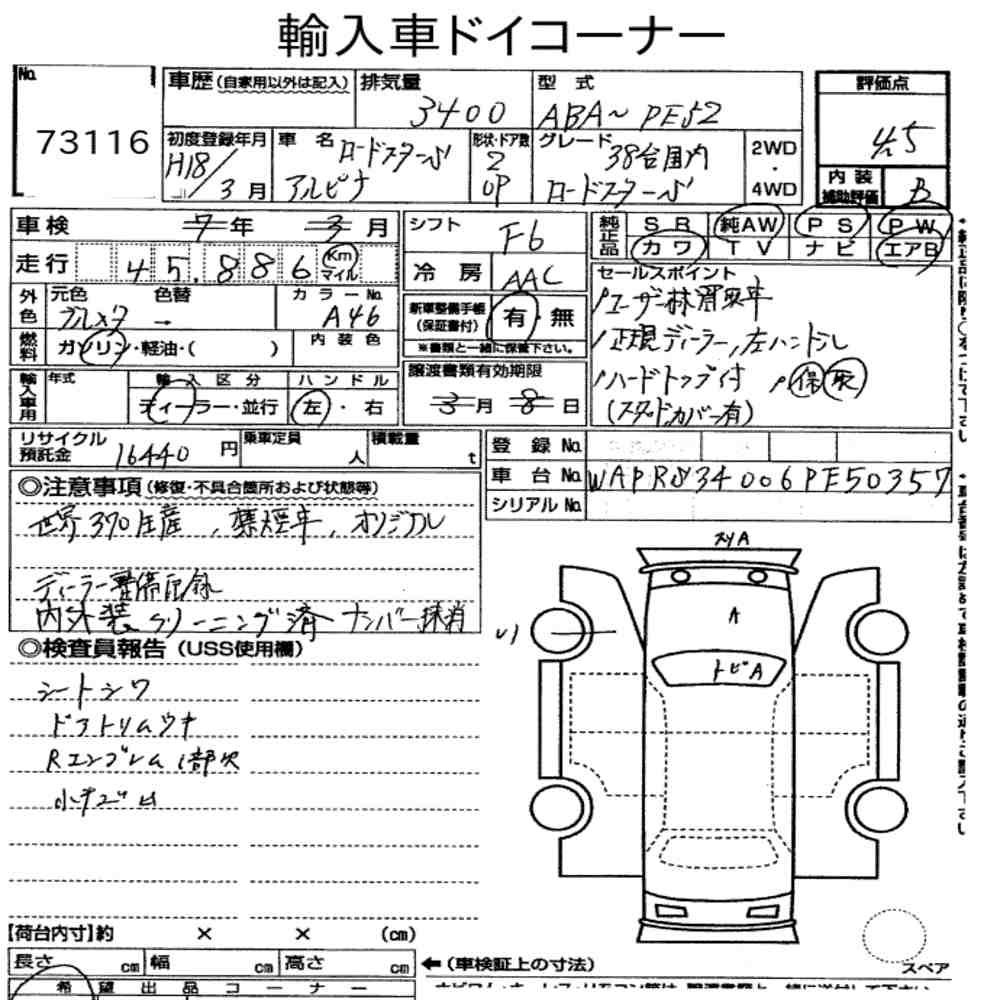 輸入車ドイコーナー
No.
73116
車歴 (自家用以外は記入)
排気量 3400
型式 ABA~PE52
評価点 4.5
初度登録年月 H18/3月
車名 ロードスターS アルピナ
形状・ドア数 2 OP
グレード 38台国内 ロードスターS
2WD・4WD
内装補助評価 B
車検 7年 3月
シフト F6
純正品 SR 純AW PS PW
カワ TV ナビ エアB
走行 45,886 Km マイル
冷房 AAC
セールスポイント
外色 元色 ブルメタ 色替 → カラーNo. A46
ユーザー抹消車
新車整備手帳 (保証書付) 有・無
※書類と一緒に保管下さい。
正規ディーラー,左ハンドル
燃料 ガソリン・軽油・( )
内装色
ハードトップ付 保 取
譲渡書類有効期限 3月 8日
(スタンドカバー有)
輸入車用 年式
輸入区分 ディーラー・並行
ハンドル 左・右
リサイクル預託金 16440円
乗車定員 人
積載量 t
登録No.
車台No. WAPRS34006PE50357
シリアルNo.
◎注意事項 (修復・不具合箇所および状態等)
世界370生産,禁煙車,オリジナル
ディーラー整備記録
内外装クリーニング済 ナンバー抹消
◎検査員報告 (USS使用欄)
シートシワ
Rエンブレム1部欠
小キズ
スリA
A
トビA
【荷台内寸】約 × × (cm)
長さ cm 幅 cm 高さ cm
←(車検証上の寸法)
スペア
希望出品コーナー